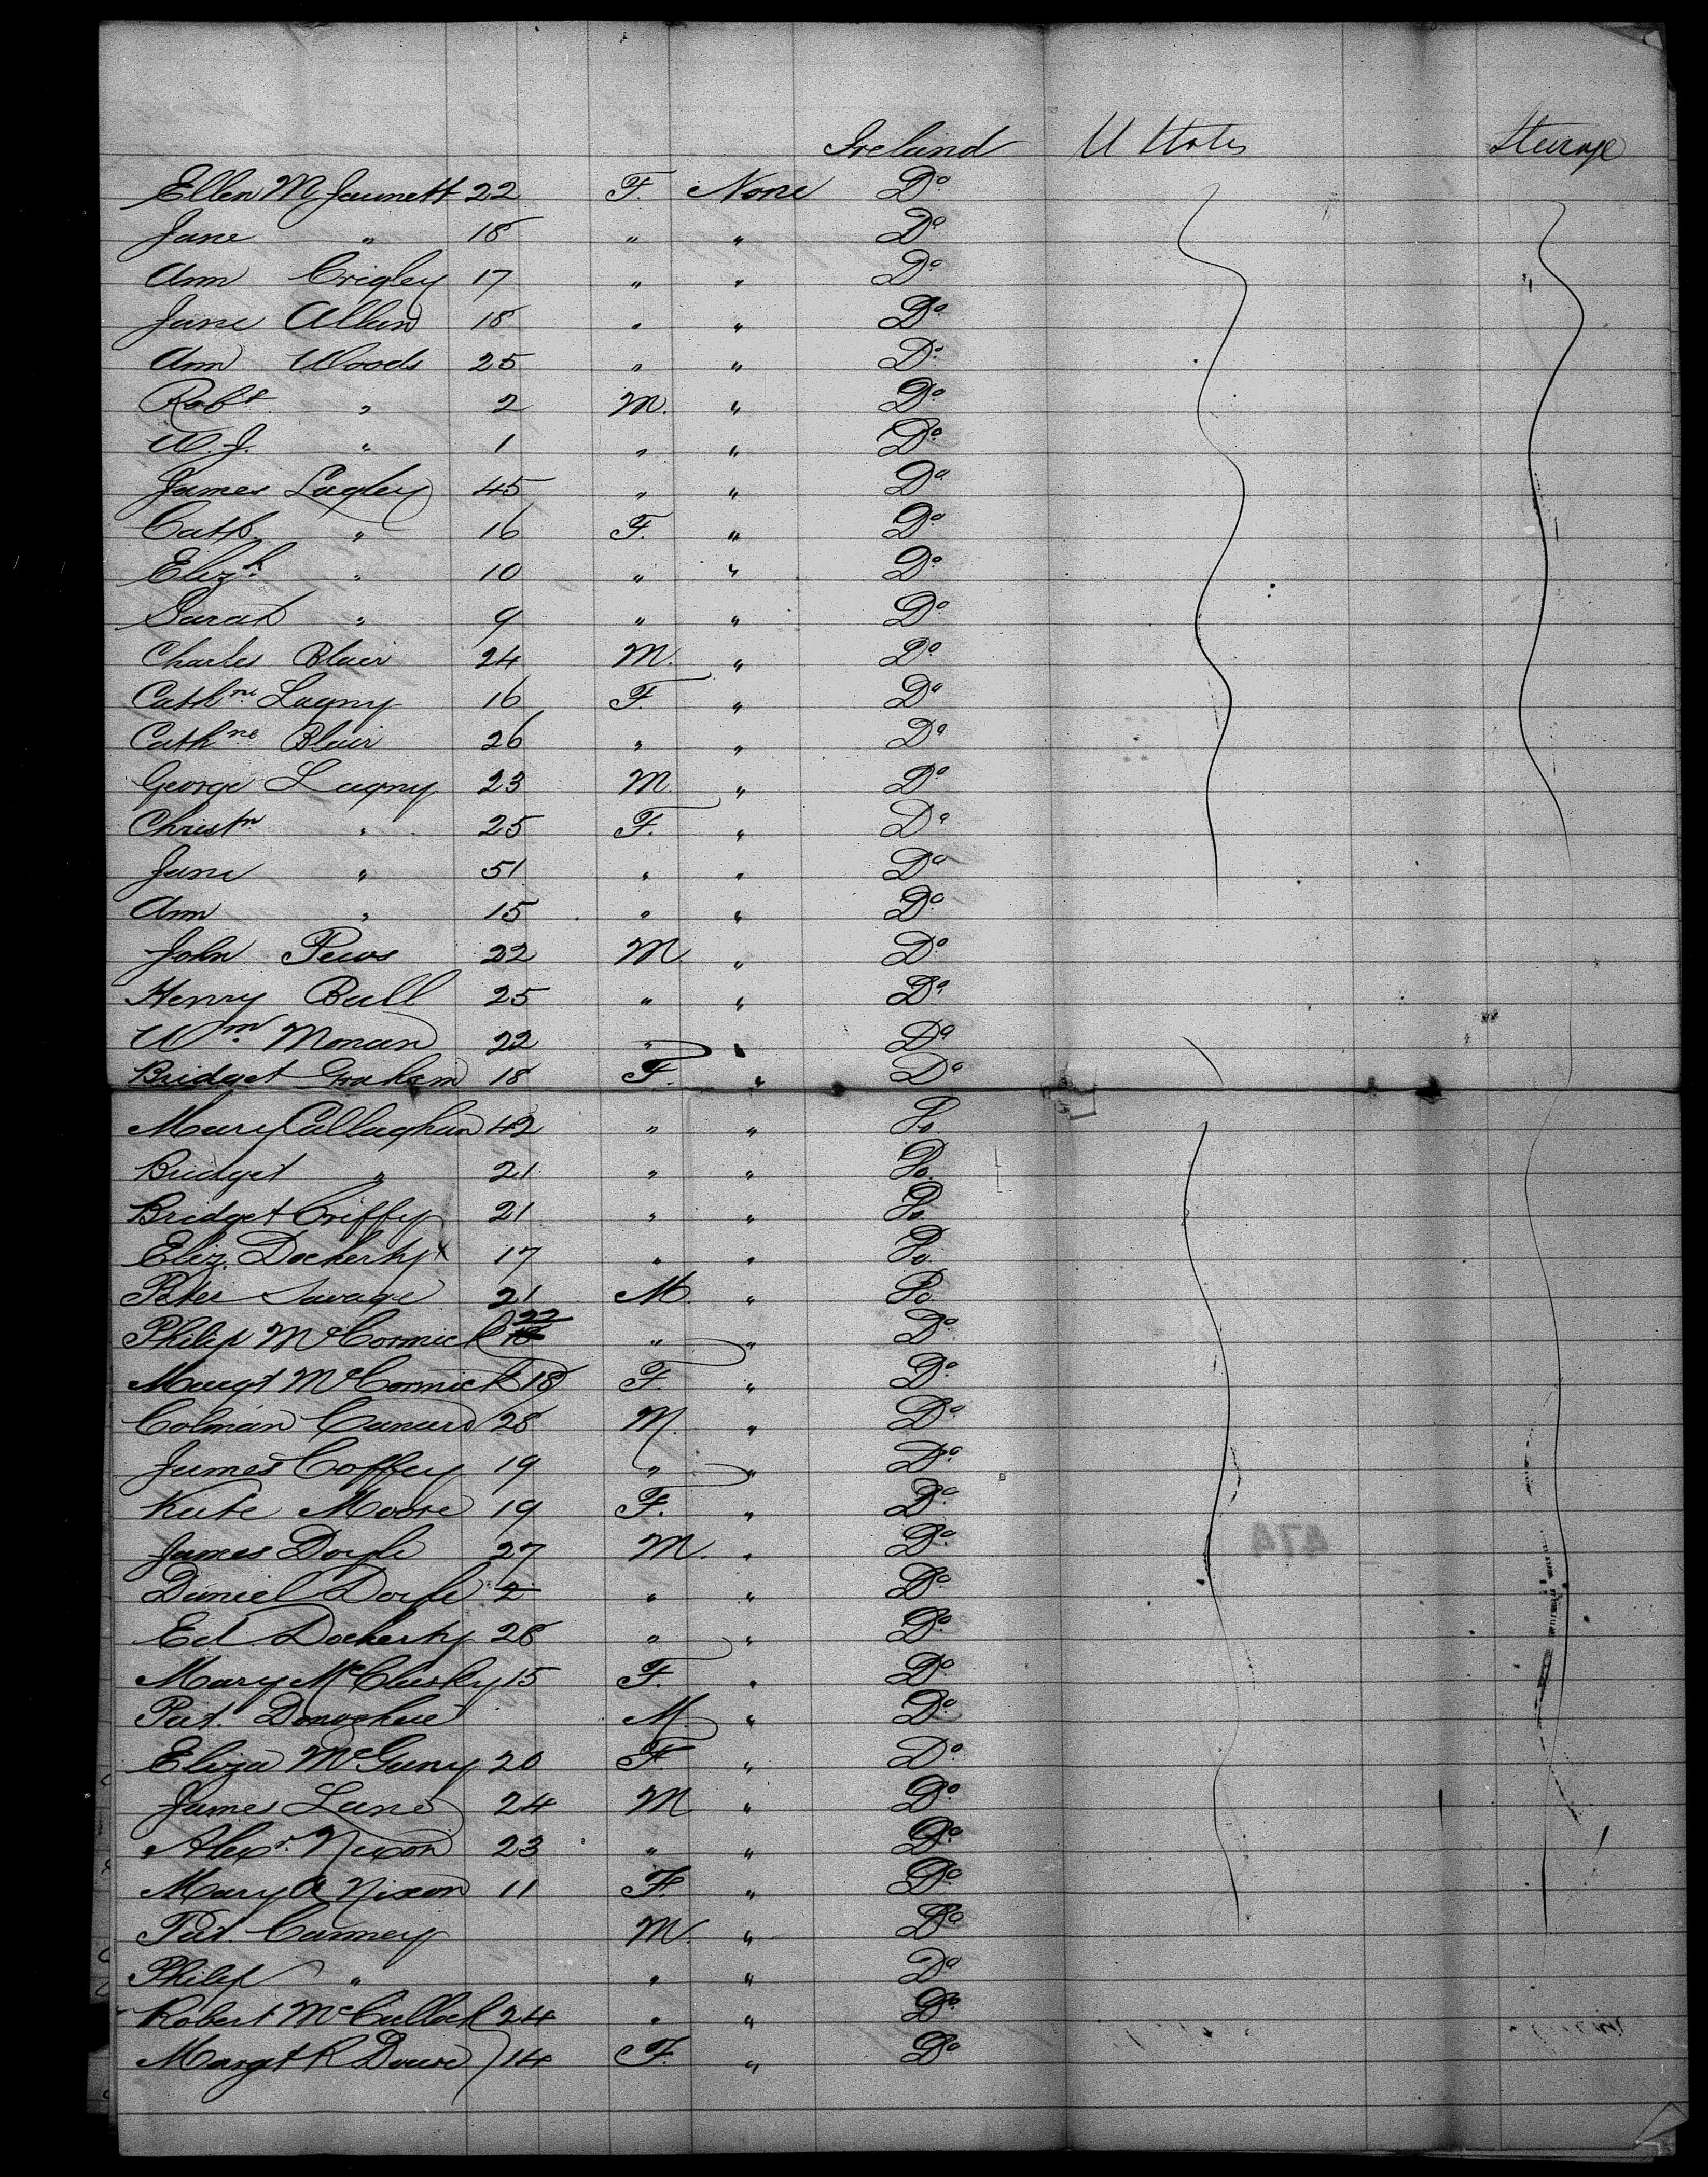 Ireland U States Steerage
Ellen M Jaunett 22 F. None Do
Jane " 18 " " Do
Ann Crigley 17 " " Do
Jane Allen 18 " " Do
Ann Woods 25 " " Do
Robt " 2 M. " Do
W. J. " 1 " " Do
James Lagley 45 " " Do
Cath " 16 F. " Do
Elizh " 10 " " Do
Sarah " 9 " " Do
Charles Blair 24 M. " Do
Cathne Lagny 16 F. " Do
Cathne Blair 26 " " Do
George Lagny 23 M. " Do
Christn " 25 F. " Do
Jane " 51 " " Do
Ann " 15 " " Do
John 22 M " Do
Henry Ball 25 " " Do
Wm Monan 22 " " Do
Bridget Graham 18 F. " Do
Mary Callaghan 42 " " Do
Bridget " 21 " " Do
Bridget Criffy 21 " " Do
Eliz. Dockerty 17 " " Do
Peter Savage 21 M. " Do
Philip McCormick 22 " " Do
Margt McCormick 18 F. " Do
Colman 28 M. " Do
James Coffey 19 " " Do
Kate Moore 19 F. " Do
James Doyle 27 M. " Do
Daniel Doyle 2 " " Do
Ed Dockerty 28 " " Do
Mary McClusky 15 F. " Do
Pat. Donoghue M. " Do
Eliza McGuny 20 F. " Do
James Lane 24 M " Do
Alexr Nixon 23 " " Do
Mary A Nixon 11 F. " Do
Pat. Canney M. " Do
Philip " " " Do
Robert McCulloch 24 " " Do
Margt R 14 F. " Do